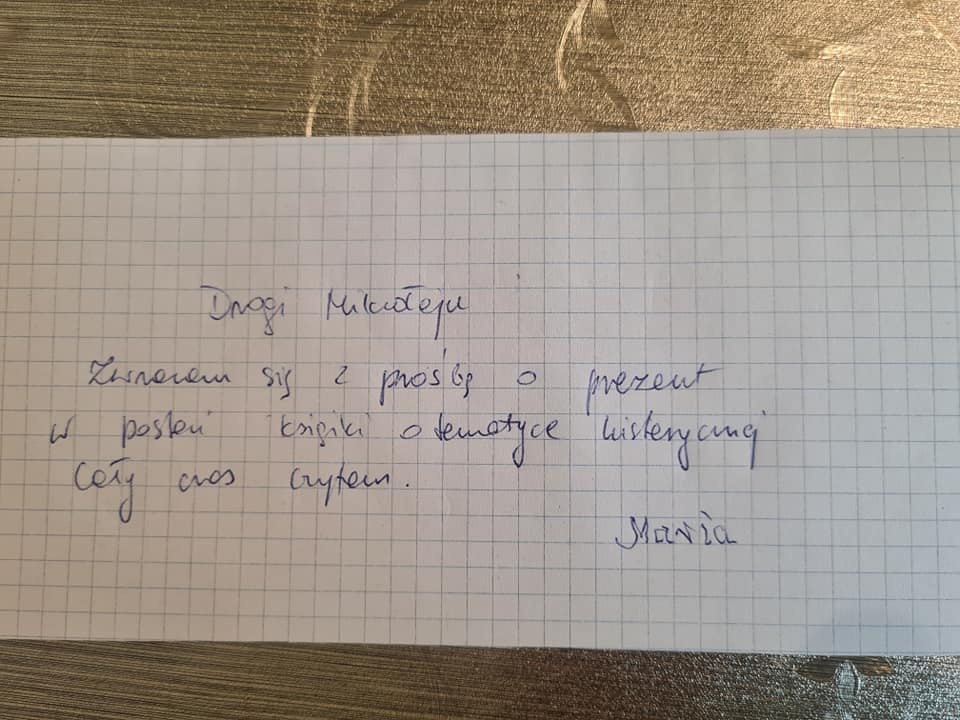 Drogi Mikołaju
Zwracam się z prośbą o prezent
w postaci książki o tematyce historycznej
Cały czas czytam.
Maria